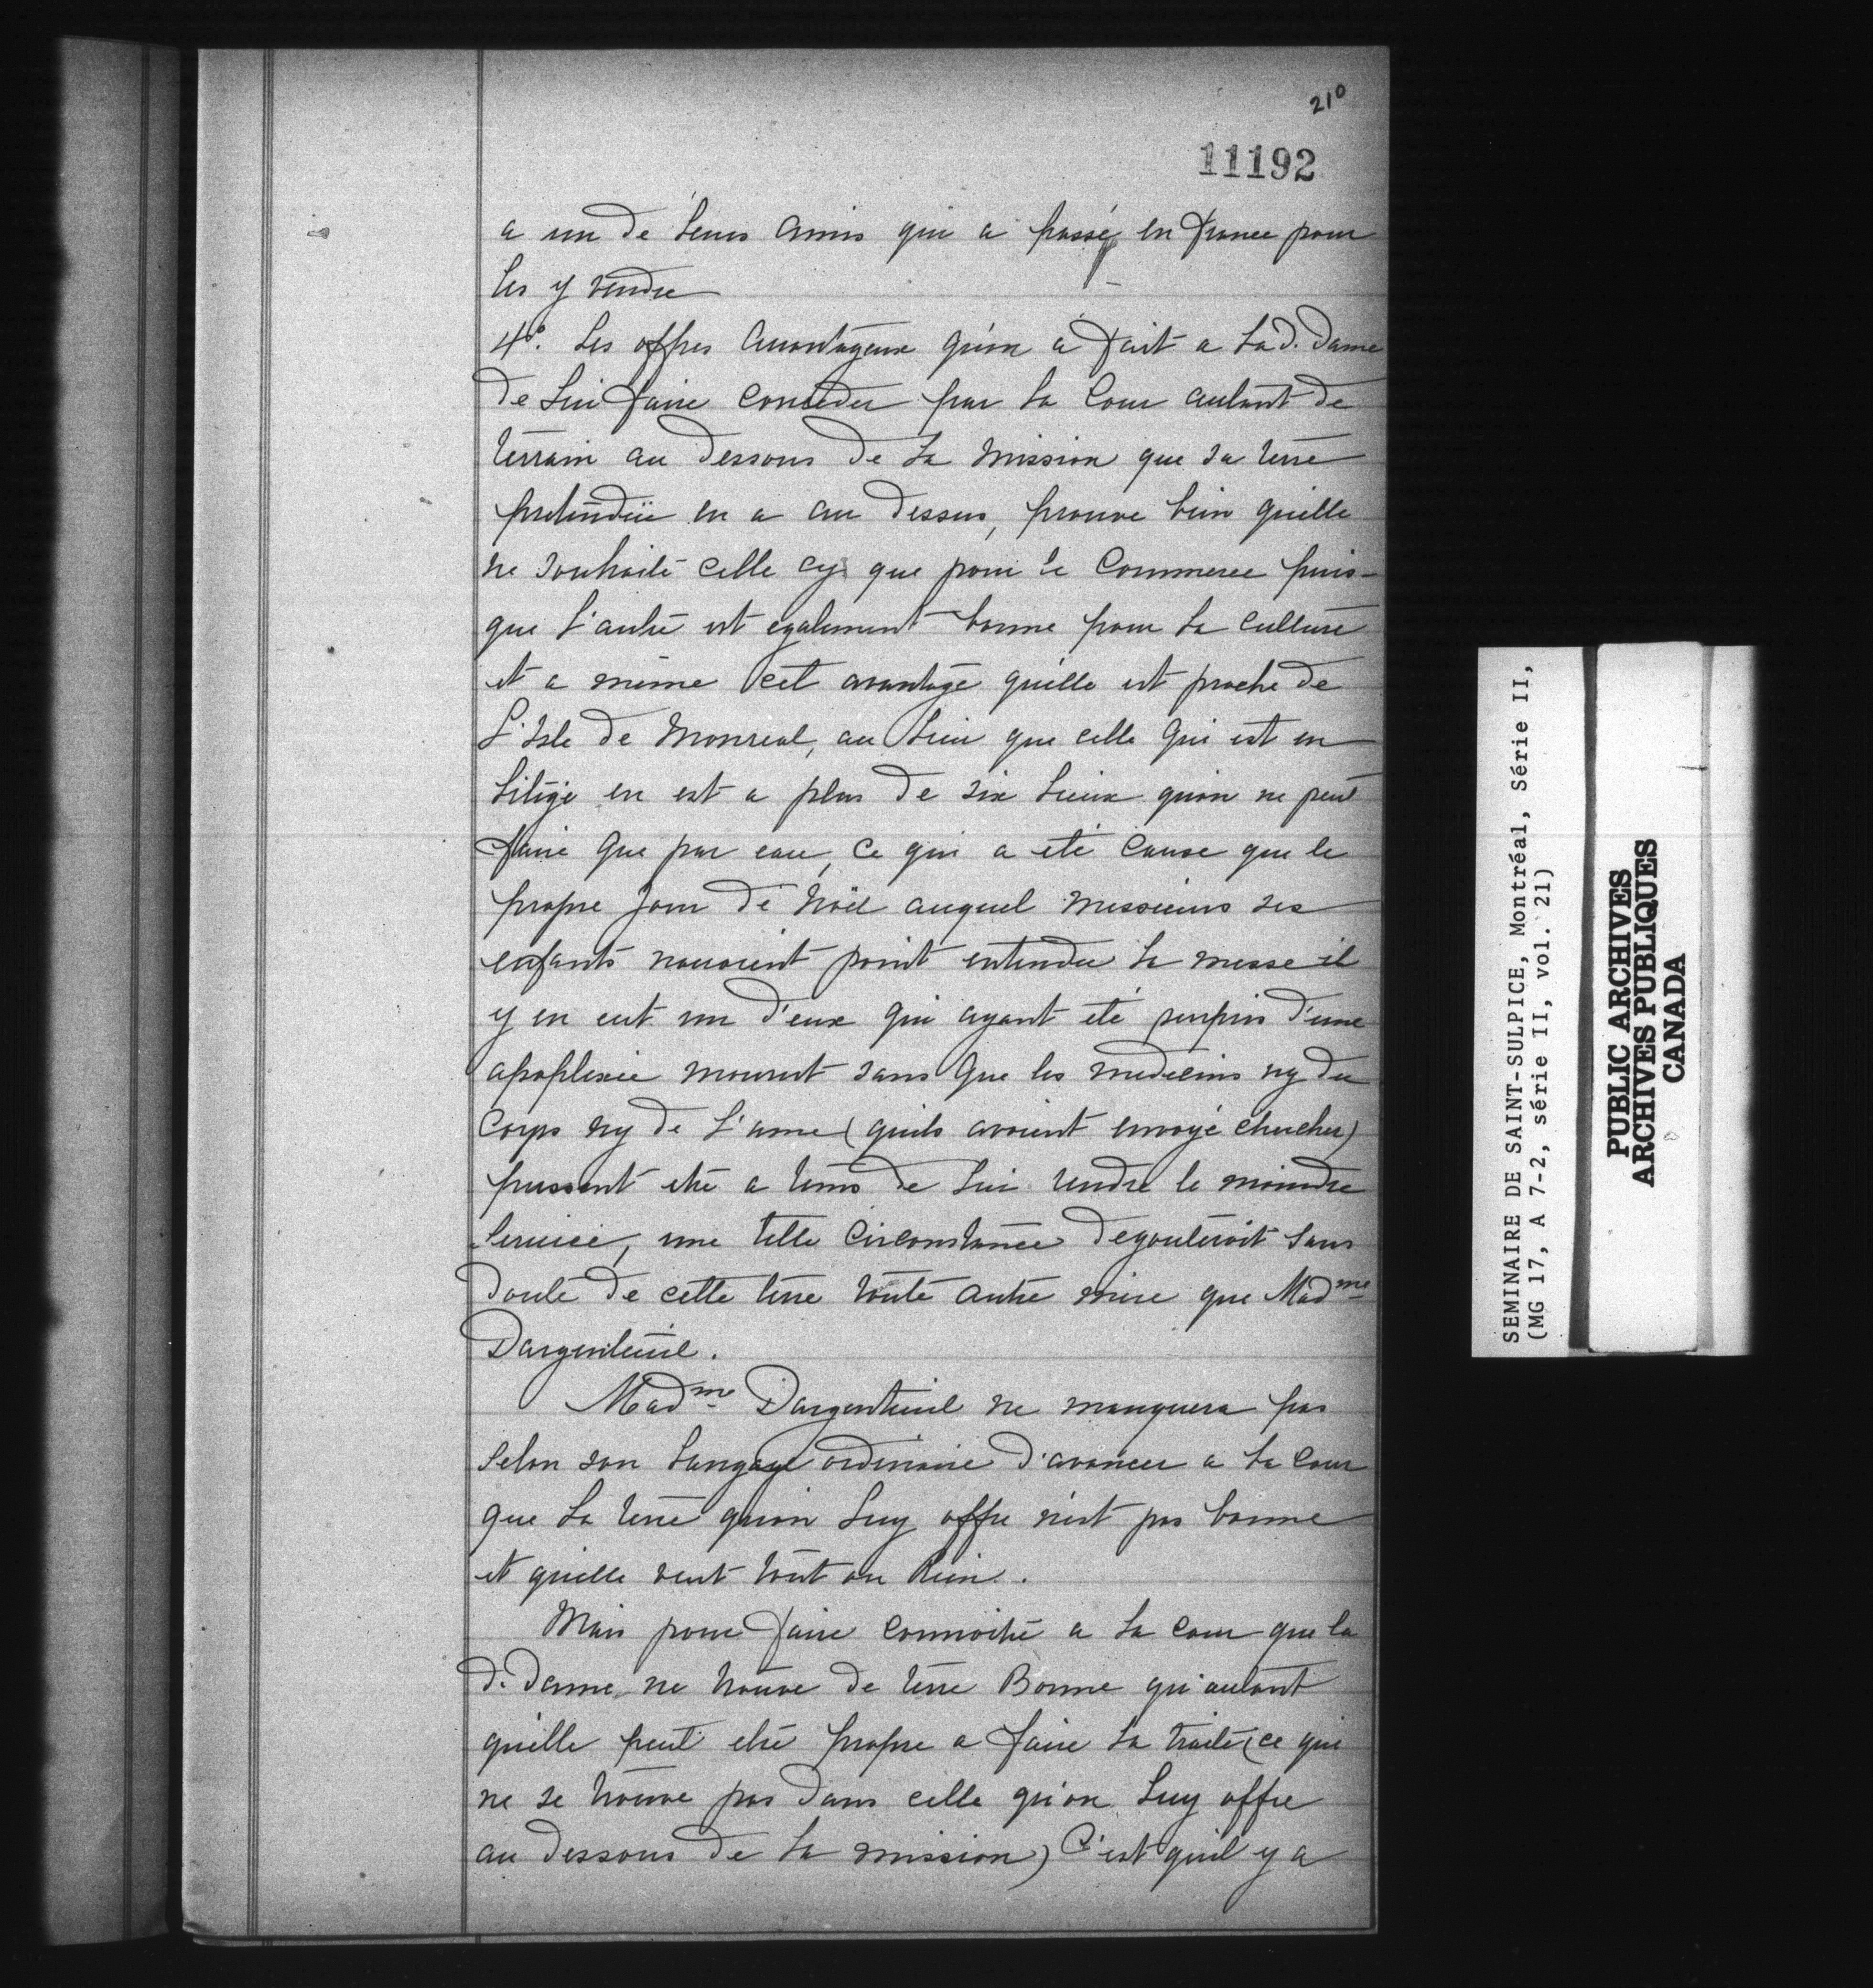 210
11192
a un de Leurs amis qui a passé en France pour
les y vendre
4º. Les offres avantageux qu'on a fait a La d. Dame
de Lui faire conceder par La Cour autant de
terrain au dessous de La mission que sa terre
pretendüe en a au dessus, prouve bien qu'elle
ne souhaite celle cy que pour le Commerce puis-
que L'autre est egalement bonne pour La culture
et a même cet avantage qu'elle est proche de
L'Isle de Monreal, au Lieu que celle qui est en
Litige en est a plus de six Lieux qu'on ne peut
faire que par eau, ce qui a eté cause que le
propre jour de Noël auquel messieurs ses
enfants n'avoient point entendu La messe il
y en eut un d'eux qui ayant eté surpris d'une
apoplexie mourut sans que les medecins ny du
Corps ny de L'ame (qu'ils avoient envoyé chercher)
pussent etre a tems de Lui rendre le moindre
Service, une telle circonstance degouteroit sans
doute de cette terre toute autre mere que Madme
Dargenteüil.
Madme Dargenteuil ne manquera pas
selon son Langage ordinaire d'avancer a La Cour
que La terre qu'on Luy offre n'est pas bonne
et qu'elle veut tout ou Rien.
Mais pour faire connoitre a La cour que la
d. Dame ne trouve de terre Bonne qu'autant
qu'elle peut etre propre a faire La traite (ce qui
ne se trouve pas dans celle qu'on Luy offre
au dessous de La mission) C'est qu'il y a
SEMINAIRE DE SAINT-SULPICE, Montréal, Série II,
(MG 17, A 7-2, série II, vol. 21)
PUBLIC ARCHIVES
ARCHIVES PUBLIQUES
CANADA